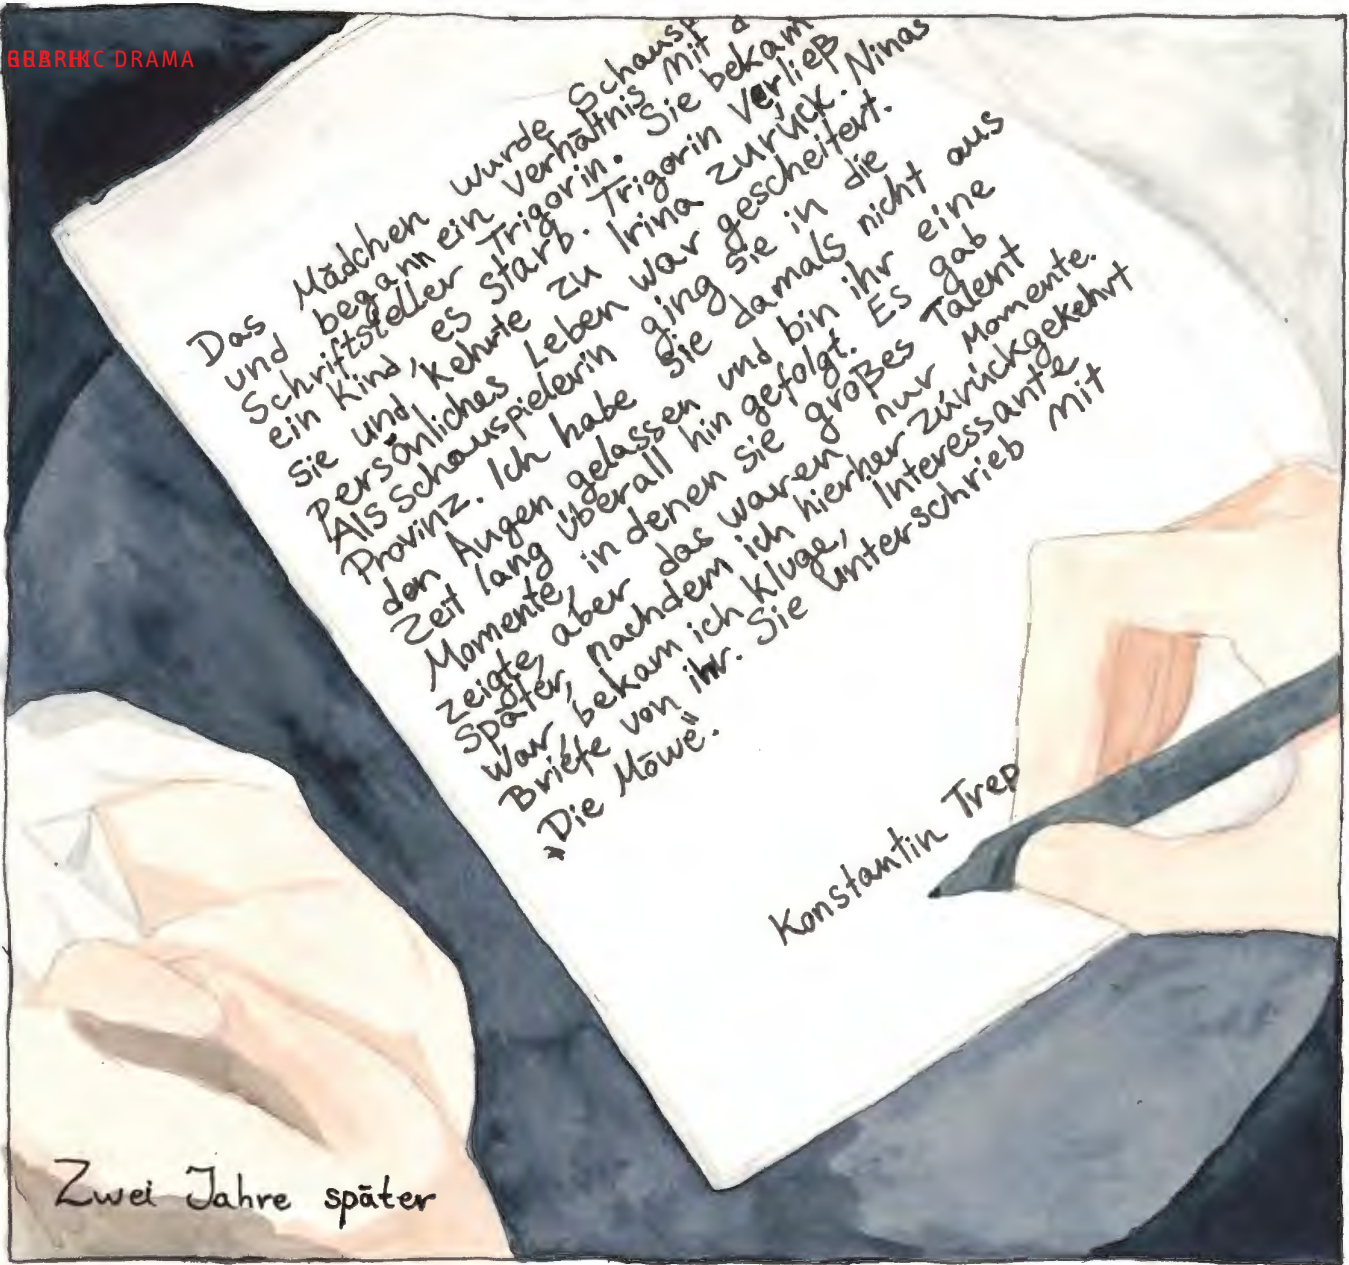 GRAPHIC DRAMA
Das Mädchen wurde Schausp
und begann ein Verhältnis mit d
Schriftsteller Trigorin. Sie bekam
ein Kind, es starb. Trigorin verließ
sie und kehrte zu Irina zurück. Ninas
persönliches Leben war gescheitert.
Als Schauspielerin ging sie in die
Provinz. Ich habe sie damals nicht aus
den Augen gelassen und bin ihr eine
Zeit lang überall hin gefolgt. Es gab
Momente, in denen sie großes Talent
zeigte, aber das waren nur Momente.
Später, nachdem ich hierher zurückgekehrt
war, bekam ich kluge, Interessante
Briefe von ihr. Sie unterschrieb mit
„Die Möwe“.
Konstantin Trep
Zwei Jahre später